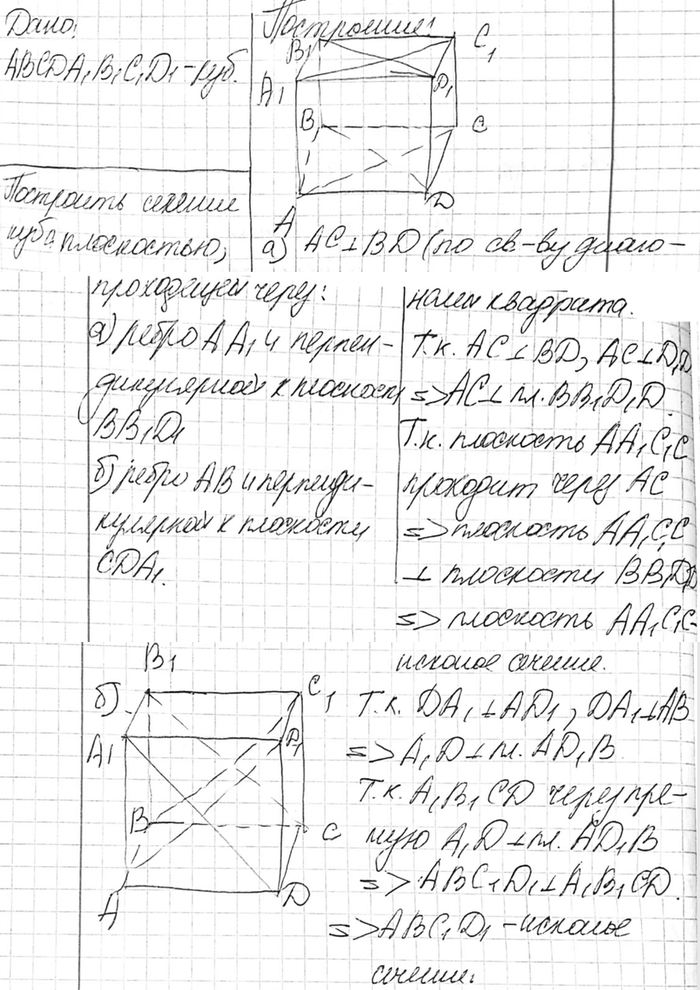 Дано:
ABCDA₁B₁C₁D₁ - куб.
Построить сечение
куба плоскостью,
проходящей через:
а) ребро AA₁ и перпен-
дикулярной к плоскости
BB₁D₁
б) ребро AB и перпенди-
кулярной к плоскости
CDA₁.
Построение:
B₁
C₁
A₁
D₁
B
C
A
D
а) AC⊥BD (по св-ву диаго-
налей квадрата.
Т.к. AC⊥BD, AC⊥D₁D
=> AC⊥ пл. BB₁D₁D.
Т.к. плоскость AA₁C₁C
проходит через AC
=> плоскость AA₁C₁C
⊥ плоскости BB₁D₁D
=> плоскость AA₁C₁C-
искомое сечение.
б)
B₁
C₁
A₁
D₁
B
C
A
D
Т.к. DA₁⊥AD₁, DA₁⊥AB
=> A₁D⊥ пл. AD₁B
Т.к. A₁B₁CD через пря-
мую A₁D⊥пл. AD₁B
=> ABC₁D₁⊥A₁B₁CD.
=> ABC₁D₁ - искомое
сечение.